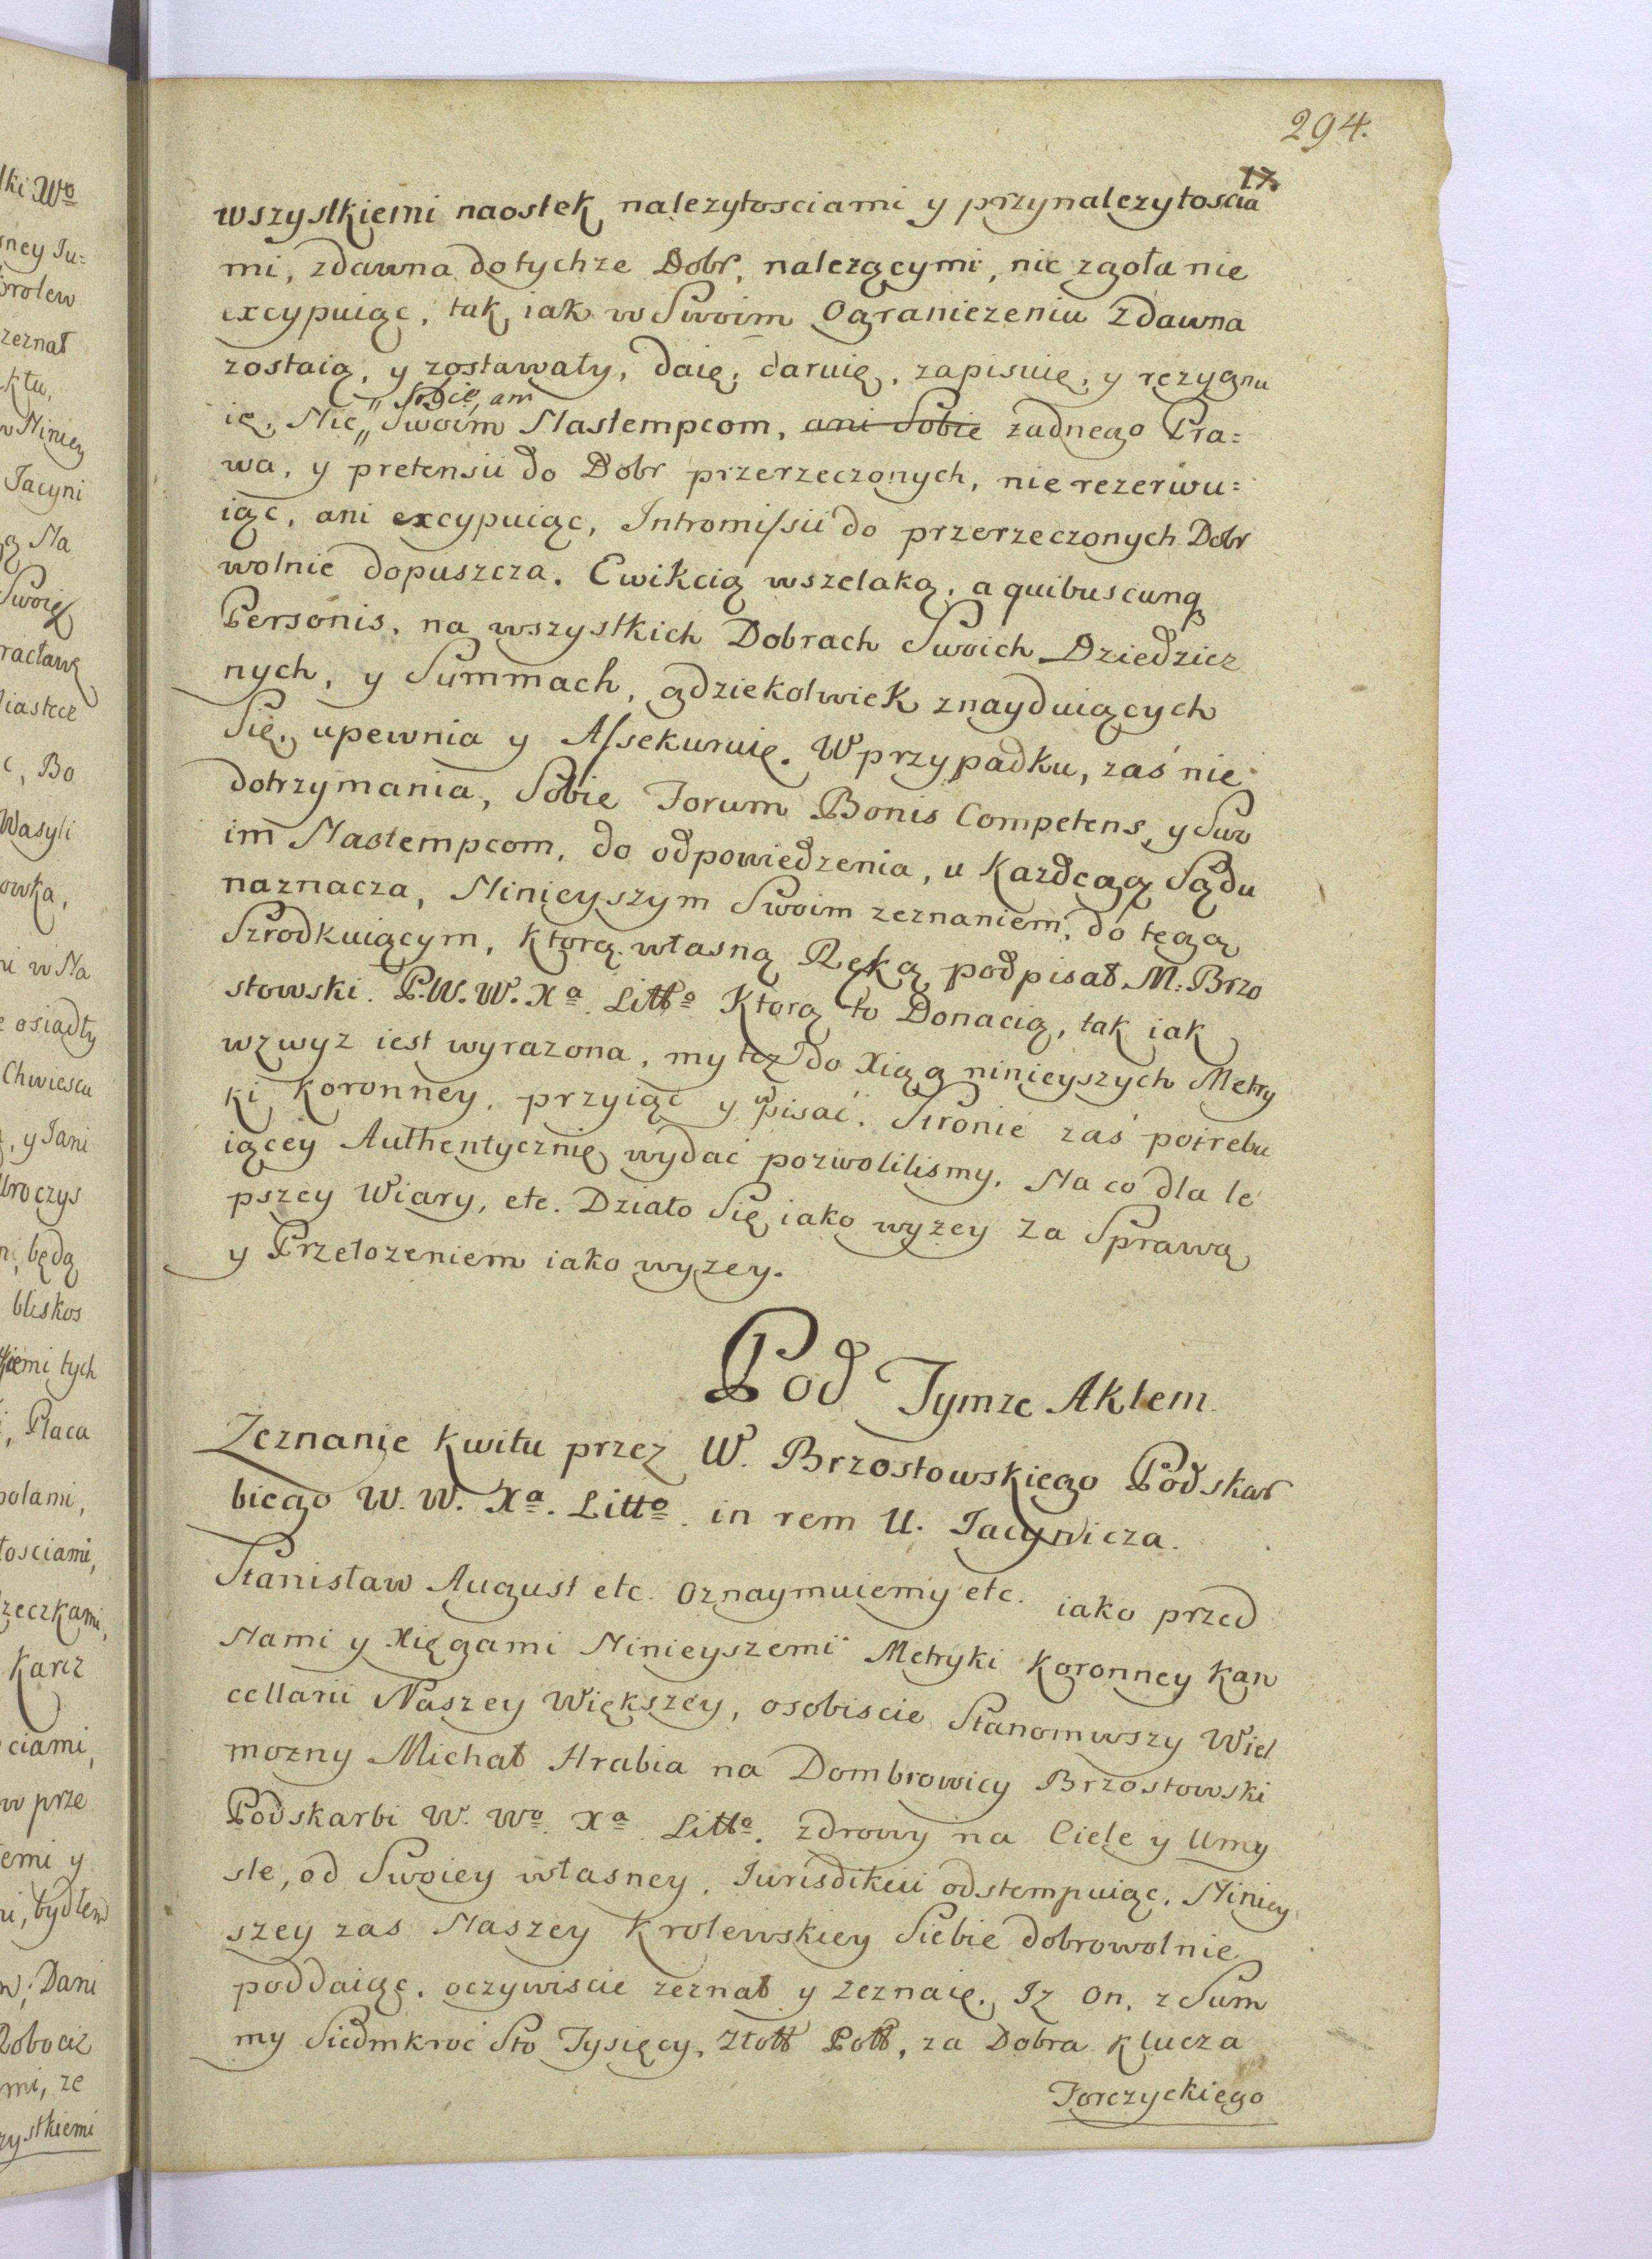 294.
17.
wszystkiemi naostek nalezytosciami y przynalezytoscia
mi, zdawna do tychze Dobr, nalezącymi, nic zgoła nie
excypuiąc, tak iak w Swoim Ograniczeniu Zdawna
zostaią, y zostawały, daie, daruie, zapisuie, y rezygnu
ie, Nic „ Sobie, ani „ Swoim Nastempcom, ani Sobie zadnego Pra=
wa, y pretensii do Dobr przerzeczonych, nie rezerwu=
iąc, ani excypuiąc, Intromissii do przerzeczonych Dobr
wolnie dopuszcza. Ewikcią wszelaką, a quibuscunq
Personis, na wszystkich Dobrach Swoich Dziedzicz
nych, y Summach, gdziekolwiek znayduiących
Się, upewnia y Assekuruie. W przypadku, zaś nie
dotrzymania, Sobie Forum Bonis Competens, y Swo
im Nastempcom, do odpowiedzenia, u Kazdego Sądu
naznacza, Ninieyszym Swoim zeznaniem, do tego
Szrodkuiącym, ktorą własną Ręką podpisał M: Brzo
stowski. P. W. W. Xa. Litto Ktorą to Donacią, tak iak
wzwyz iest wyrazona, my tez do Xiąg ninieyszych Metry
ki Koronney, przyiąć y wpisać. Stronie zaś potrebu
iącey Authentycznie wydać pozwolilismy. Na co dla le
pszey Wiary, etc. Działo Się iako wyzey za Sprawą
y Przełozeniem iako wyzey.
Pod Tymze Aktem.
Zeznanie Kwitu przez W. Brzostowskiego Podskar
biego W. W. Xa. Litto. in rem U. Jacynicza.
Stanisław August etc. Oznaymuiemy etc. iako przed
Nami y Xięgami Ninieyszemi Metryki Koronney Kan
cellarii Naszey Większey, osobiscie Stanowwszy Wiel
mozny Michał Hrabia na Dombrowicy Brzostowski
Podskarbi W. Wo. Xa. Litto. zdrowy na Ciele y Umy
sle, od Swoiey własney, Iurisdikcii odstempuiąc, Niniey
szey zas Naszey Krolewskiey Siebie dobrowolnie
poddaiąc, oczywiscie zeznał y zeznaie, Iz On, z Sum
my Siedmkroć Sto Tysięcy, Złott Poll, za Dobra Klucza
Forczyckiego